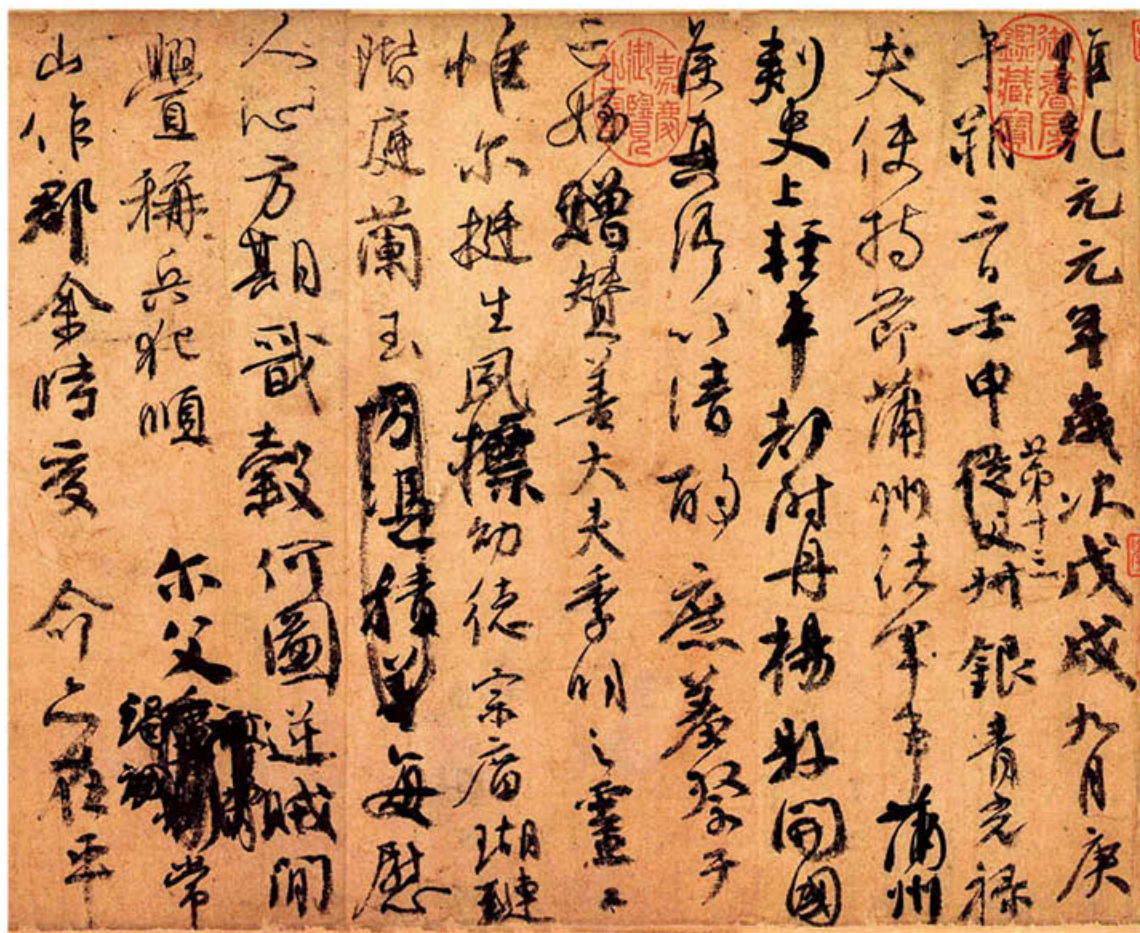 維乾元元年歲次戊戌九月庚
午朔三日壬申第十三從父叔銀青光祿
夫使持節蒲州諸軍事蒲州
刺史上輕車都尉丹楊縣開國
侯真卿以清酌庶羞祭于
亡姪贈贊善大夫季明之靈曰
惟爾挺生夙標幼德宗廟瑚璉
階庭蘭玉方憑積善每慰
人心方期戩穀何圖逆賊閒
釁稱兵犯順爾父竭誠常
山作郡余時受命亦在平